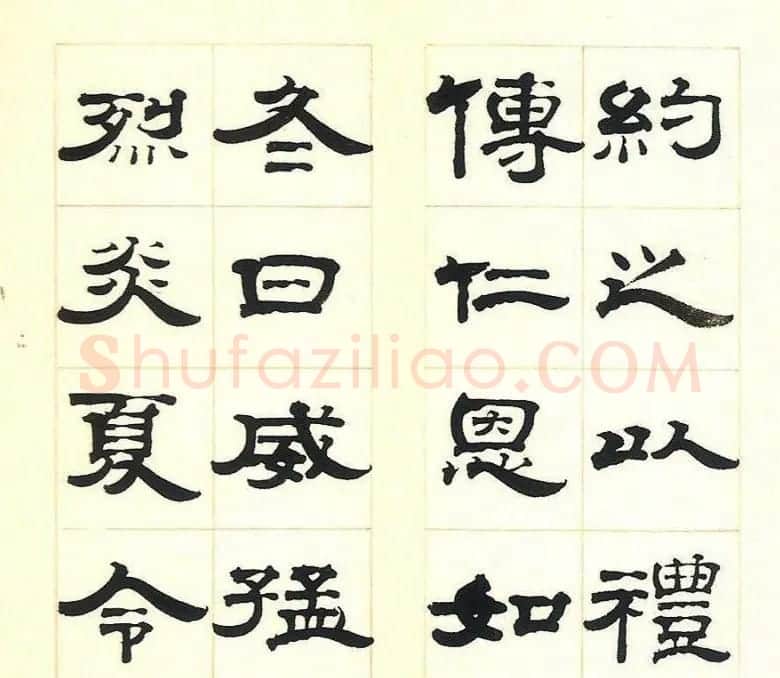 約之以禮
傳仁恩如
冬日威猛
烈炎夏令
Shufaziliao.COM